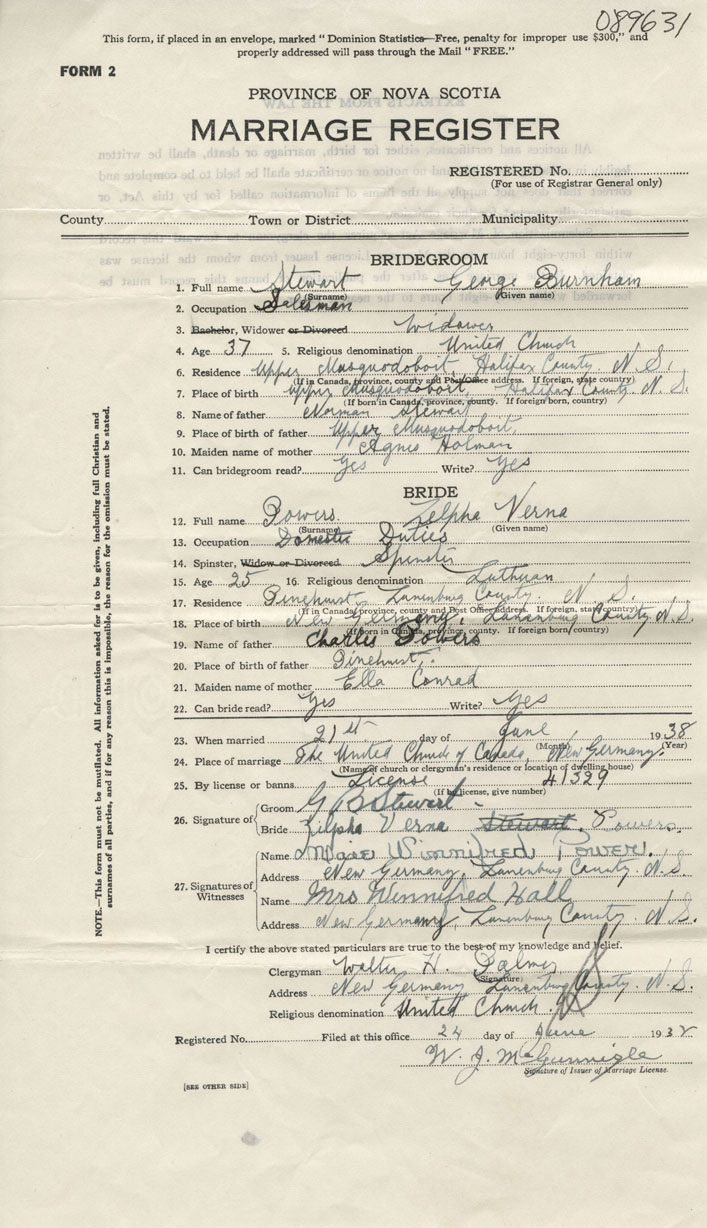 089631
This form, if placed in an envelope, marked "Dominion Statistics—Free, penalty for improper use $300," and
properly addressed will pass through the Mail "FREE."
FORM 2
PROVINCE OF NOVA SCOTIA
MARRIAGE REGISTER
REGISTERED No.
(For use of Registrar General only)
County Town or District Municipality
BRIDEGROOM
1. Full name Stewart George Burnham
(Surname) (Given name)
2. Occupation Salesman
3. Bachelor, Widower or Divorced Widower
4. Age 37 5. Religious denomination United Church
6. Residence Upper Musquodoboit, Halifax County N.S.
(If in Canada, province, county and Post Office address. If foreign, state country)
7. Place of birth Upper Musquodoboit, Halifax County N.S.
(If born in Canada, province, county. If foreign born, country)
8. Name of father Norman Stewart
9. Place of birth of father Upper Musquodoboit,
10. Maiden name of mother Agnes Holman
11. Can bridegroom read? Yes Write? Yes
BRIDE
12. Full name Powers Zelpha Verna
(Surname) (Given name)
13. Occupation Domestic Duties
14. Spinster, Widow or Divorced Spinster
15. Age 25 16. Religious denomination Luthuan
17. Residence Pinehurst, Lunenburg County. N.S.
(If in Canada, province, county and Post Office address. If foreign, state country)
18. Place of birth New Germany, Lunenburg County N.S.
(If born in Canada, province, county. If foreign born, country)
19. Name of father Charles Powers
20. Place of birth of father Pinehurst,
21. Maiden name of mother Ella Conrad
22. Can bride read? Yes Write? Yes
23. When married 21st day of June 1938
(Month) (Year)
24. Place of marriage The United Church of Canada, New Germany.
(Name of church or clergyman's residence or location of dwelling house)
25. By license or banns License 41329
(If License, give number)
26. Signature of Groom G B Stewart
Bride Zelpha Verna Stewart Powers.
27. Signatures of Witnesses
Name Winnifred Power.
Address New Germany, Lunenburg County. N.S.
Name Mrs Winnifred Hall
Address New Germany, Lunenburg County N.S.
I certify the above stated particulars are true to the best of my knowledge and belief.
Clergyman Walter H. Palmer
(Signature)
Address New Germany Lunenburg County. N.S.
Religious denomination United Church
Registered No. Filed at this office 24 day of June 1938
W. J. McGunnigle
Signature of Issuer of Marriage License.
[SEE OTHER SIDE]
NOTE.—This form must not be mutilated. All information asked for is to be given, including full Christian and
surnames of all parties, and if for any reason this is impossible, the reason for the omission must be stated.